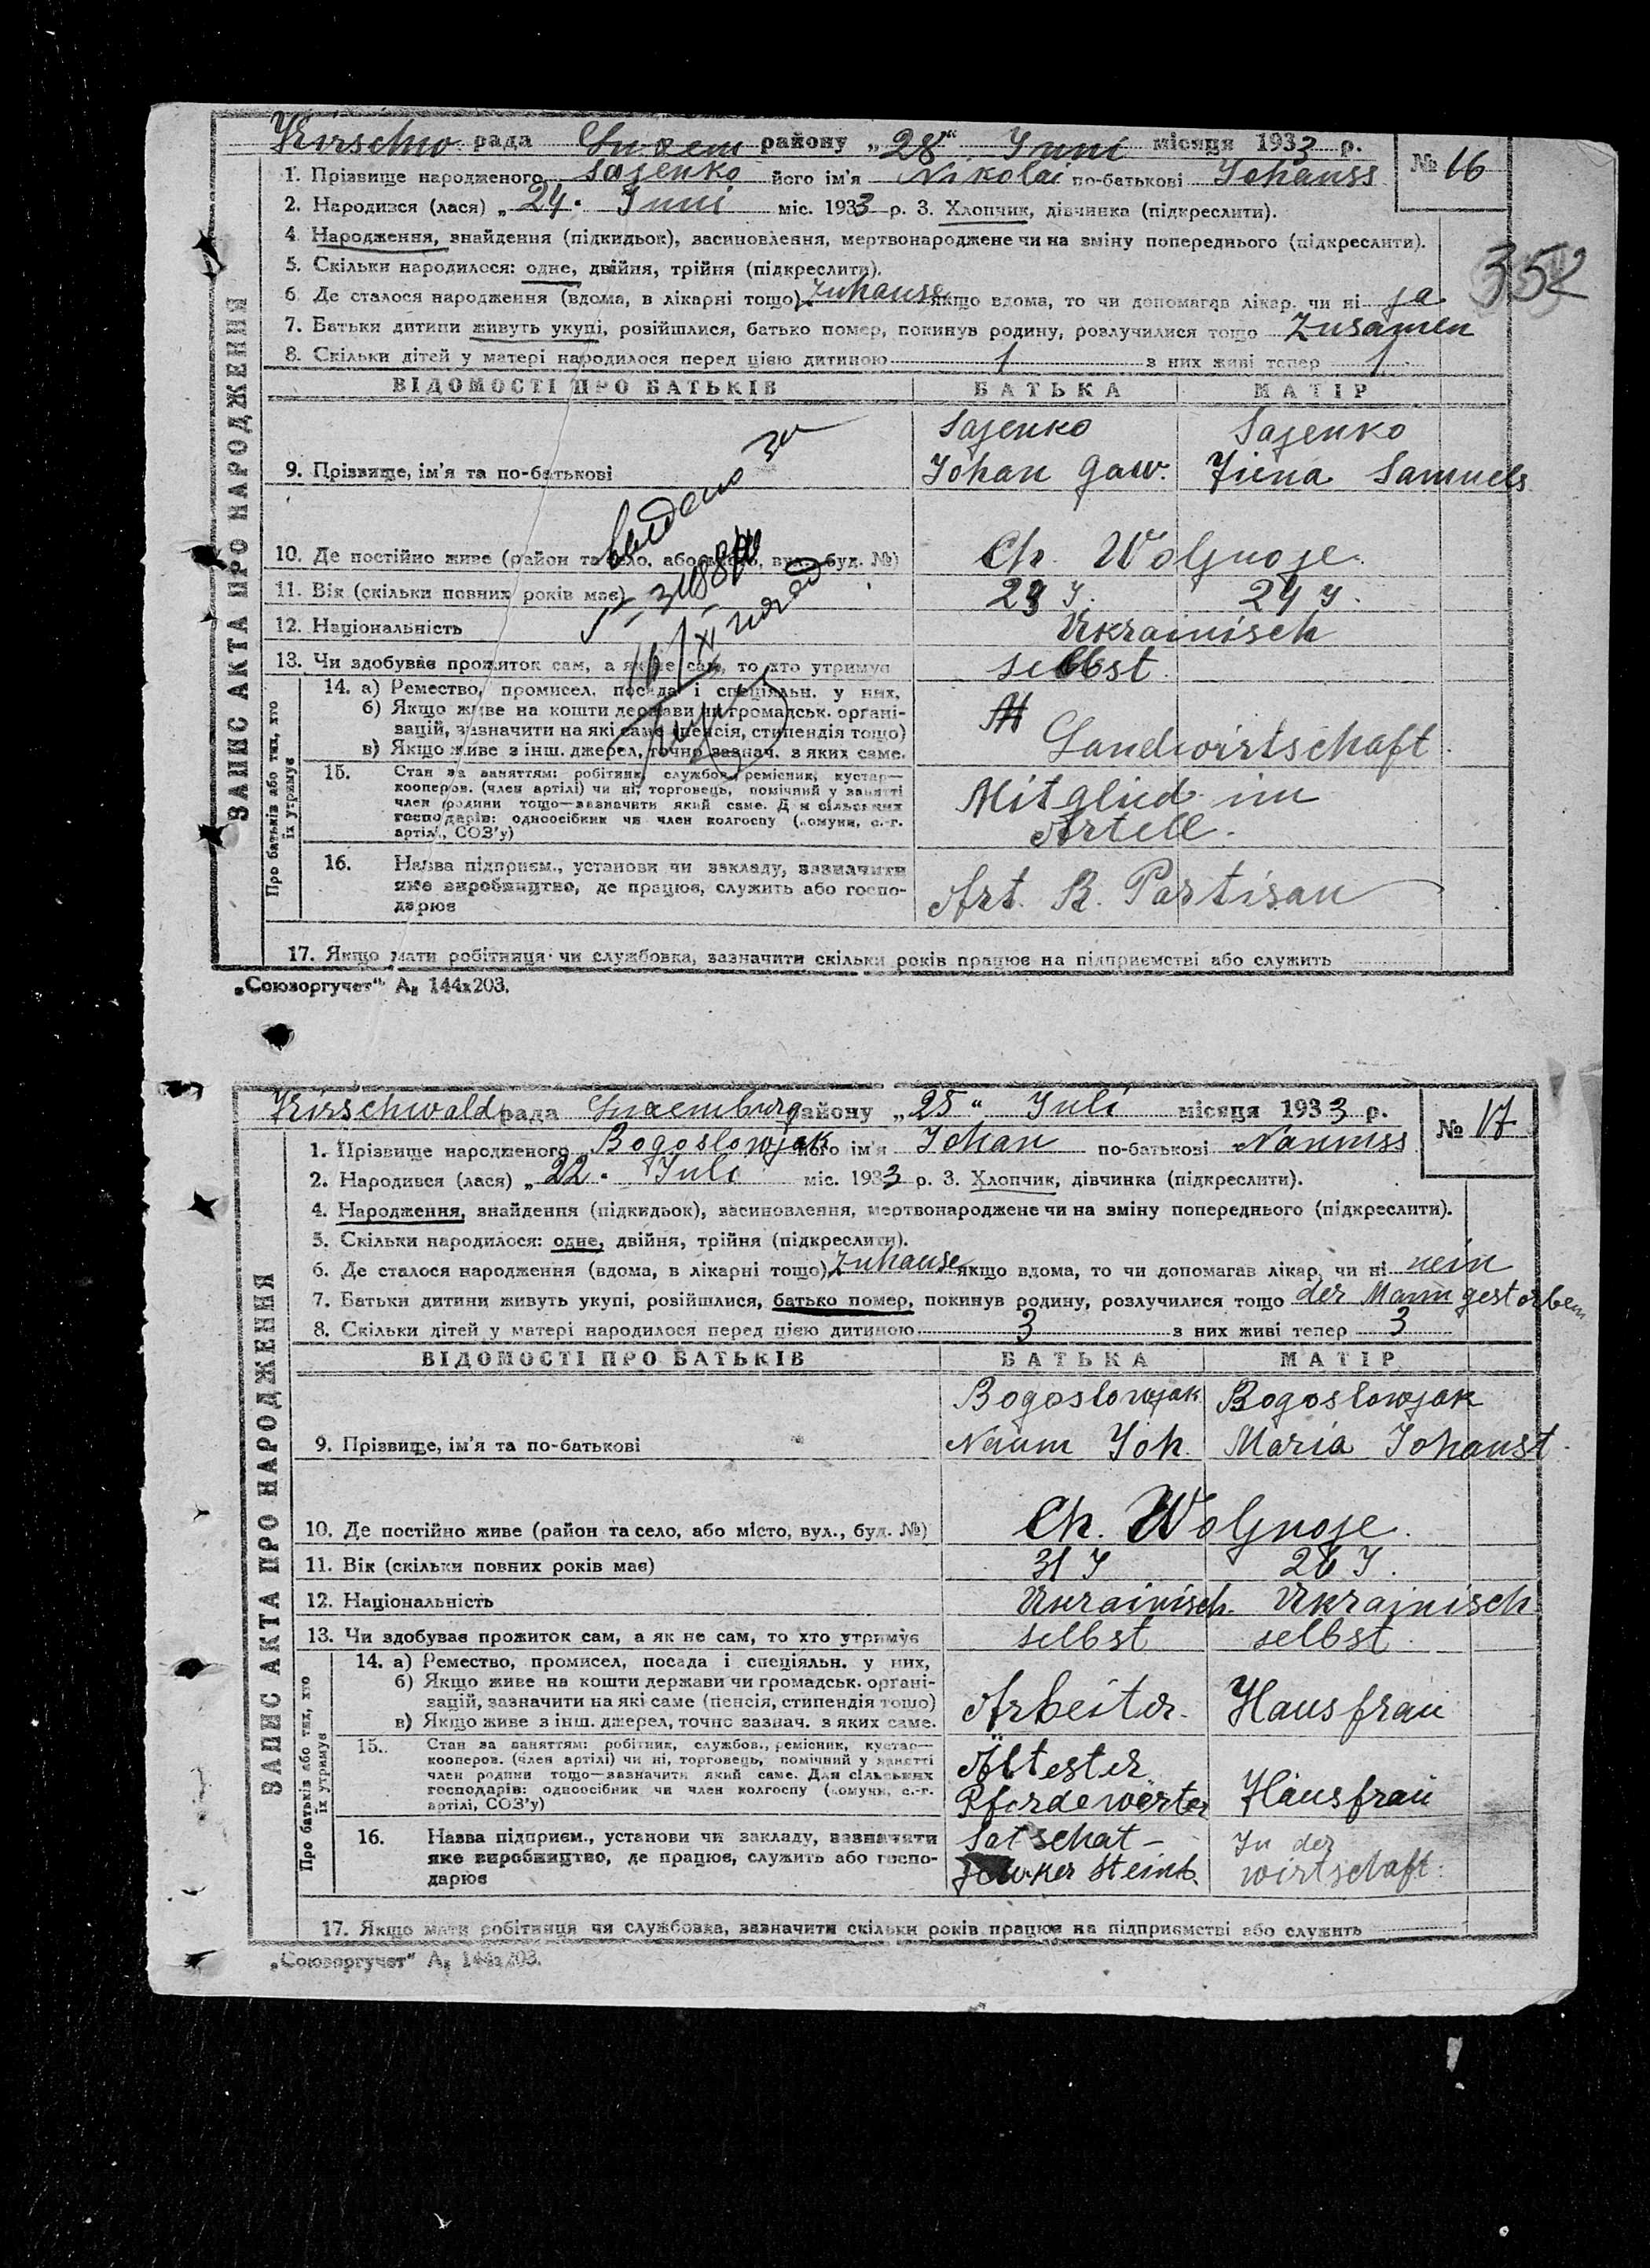 Kirschw рада Luxem району „28“ Juni місяця 1933 р.
№ 16
1. Прізвище народженого Sasenko його ім'я Nikolai по-батькові Johanss
2. Народився (лася) „24. Juni міс. 1933 р. 3. Хлопчик, дівчинка (підкреслити).
4. Народження, знайдення (підкидьок), засиновлення, мертвонароджене чи на зміну попереднього (підкреслити).
5. Скільки народилося: одне, двійня, трійня (підкреслити).
352
6. Де сталося народження (вдома, в лікарні тощо) Zuhause якщо вдома, то чи допомагав лікар, чи ні ja
7. Батьки дитини живуть укупі, розійшлися, батько помер, покинув родину, розлучилися тощо Zusamen
8. Скільки дітей у матері народилося перед цією дитиною 1 з них живі тепер 1
ЗАПИС АКТА ПРО НАРОДЖЕННЯ
ВІДОМОСТІ ПРО БАТЬКІВ БАТЬКА МАТІР
Sasenko Sasenko
9. Прізвище, ім'я та по-батькові Johan Gaw. Samuels
10. Де постійно живе (район та село, або місто, вул., буд. №) Ch. Woljnoje.
11. Вік (скільки повних років має) 24 J.
12. Національність Ukrainisch
13. Чи здобуває прожиток сам, а як не сам, то хто утримує selbst
Про батьків або тих, хто їх утримує
14. а) Ремество, промисел, посада і спеціяльн. у них,
б) Якщо живе на кошти держави чи громадськ. органі-
зацій, зазначити на які саме (пенсія, стипендія тощо)
в) Якщо живе з інш. джерел, точно зазнач. з яких саме.
Landwirtschaft.
15. Стан за заняттям: робітник, службов., ремісник, кустар—
кооперов. (член артілі) чи ні, торговець, помічний у занятті
член родини тощо—зазначити який саме. Для сільських
господарів: одноосібник чи член колгоспу (комуни, с.-г.
артілі, СОЗ'у)
Mitglied im
Artell.
16. Назва підприєм., установи чи закладу, зазначити
яке виробництво, де працює, служить або госпо-
дарює
Art. R. Partisan
17. Якщо мати робітниця чи службовка, зазначити скільки років працює на підприємстві або служить
„Союзоргучет“ А₅ 144х203.
Kirschwald рада Luxemburg району „25“ Juli місяця 1933 р.
№ 17
1. Прізвище народженого Bogoslowjak його ім'я Johan по-батькові Naumss
2. Народився (лася) „22. Juli міс. 1933 р. 3. Хлопчик, дівчинка (підкреслити).
4. Народження, знайдення (підкидьок), засиновлення, мертвонароджене чи на зміну попереднього (підкреслити).
5. Скільки народилося: одне, двійня, трійня (підкреслити).
6. Де сталося народження (вдома, в лікарні тощо) Zuhause якщо вдома, то чи допомагав лікар, чи ні nein
7. Батьки дитини живуть укупі, розійшлися, батько помер, покинув родину, розлучилися тощо der Mann gestorben
8. Скільки дітей у матері народилося перед цією дитиною 3 з них живі тепер 3
ЗАПИС АКТА ПРО НАРОДЖЕННЯ
ВІДОМОСТІ ПРО БАТЬКІВ БАТЬКА МАТІР
Bogoslowjak Bogoslowjak
9. Прізвище, ім'я та по-батькові Naum Joh. Maria Johanst.
10. Де постійно живе (район та село, або місто, вул., буд. №) Ch. Woljnoje.
11. Вік (скільки повних років має) 31 J 26 J.
12. Національність Ukrainisch. Ukrainisch.
13. Чи здобуває прожиток сам, а як не сам, то хто утримує selbst selbst.
Про батьків або тих, хто їх утримує
14. а) Ремество, промисел, посада і спеціяльн. у них,
б) Якщо живе на кошти держави чи громадськ. органі-
зацій, зазначити на які саме (пенсія, стипендія тощо)
в) Якщо живе з інш. джерел, точно зазнач. з яких саме.
Arbeiter. Hausfrau
15. Стан за заняттям: робітник, службов., ремісник, кустар—
кооперов. (член артілі) чи ні, торговець, помічний у занятті
член родини тощо—зазначити який саме. Для сільських
господарів: одноосібник чи член колгоспу (комуни, с.-г.
артілі, СОЗ'у)
Ältester
Pferdewerter Hausfrau
16. Назва підприєм., установи чи закладу, зазначити
яке виробництво, де працює, служить або госпо-
дарює
Satschat-
Steinb. In der
wirtschaft.
17. Якщо мати робітниця чи службовка, зазначити скільки років працює на підприємстві або служить
„Союзоргучет“ А₅ 144х203.